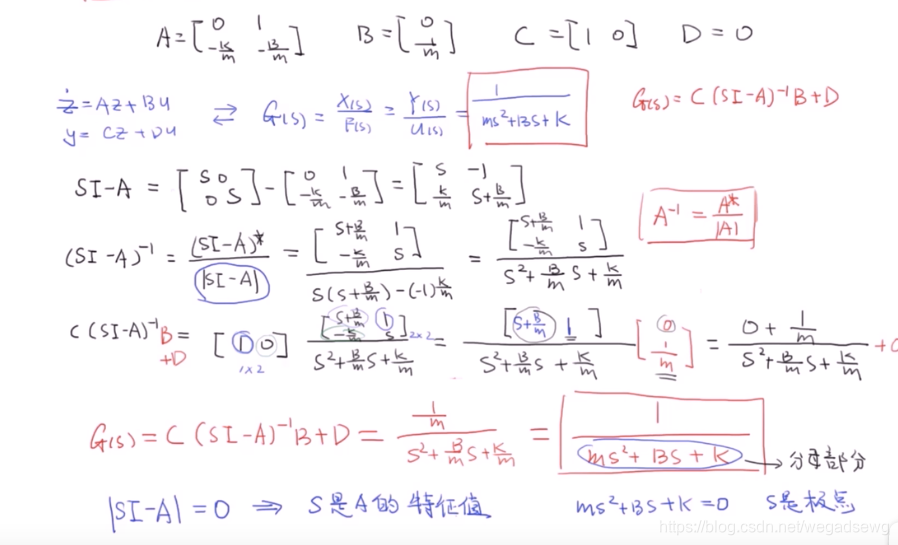 A = [0 1; -K/m -B/m]  B = [0; 1/m]  C = [1 0]  D = 0
ż = AZ + BU ⇄ G(s) = X(s)/F(s) = Y(s)/U(s) = 1/(ms²+BS+K)  G(s) = C(SI-A)⁻¹B+D
y = CZ + DU
SI-A = [S 0; 0 S] - [0 1; -K/m -B/m] = [S -1; K/m S+B/m]
A⁻¹ = A*/|A|
(SI-A)⁻¹ = (SI-A)*/|SI-A| = [S+B/m 1; -K/m S]/(S(S+B/m)-(-1)K/m) = [S+B/m 1; -K/m S]/(S²+B/m S+K/m)
C(SI-A)⁻¹B+D = [1 0]1×2 [S+B/m 1; -K/m S]2×2/(S²+B/m S+K/m) = [S+B/m 1]/(S²+B/m S+K/m) [0; 1/m] = (0+1/m)/(S²+B/m S+K/m) +
G(s) = C(SI-A)⁻¹B+D = (1/m)/(S²+B/m S+K/m) = 1/(ms²+BS+K) → 分母部分
|SI-A| = 0 ⇒ S是A的特征值  ms²+BS+K=0  S是极点
https://blog.csdn.net/wegadsewg